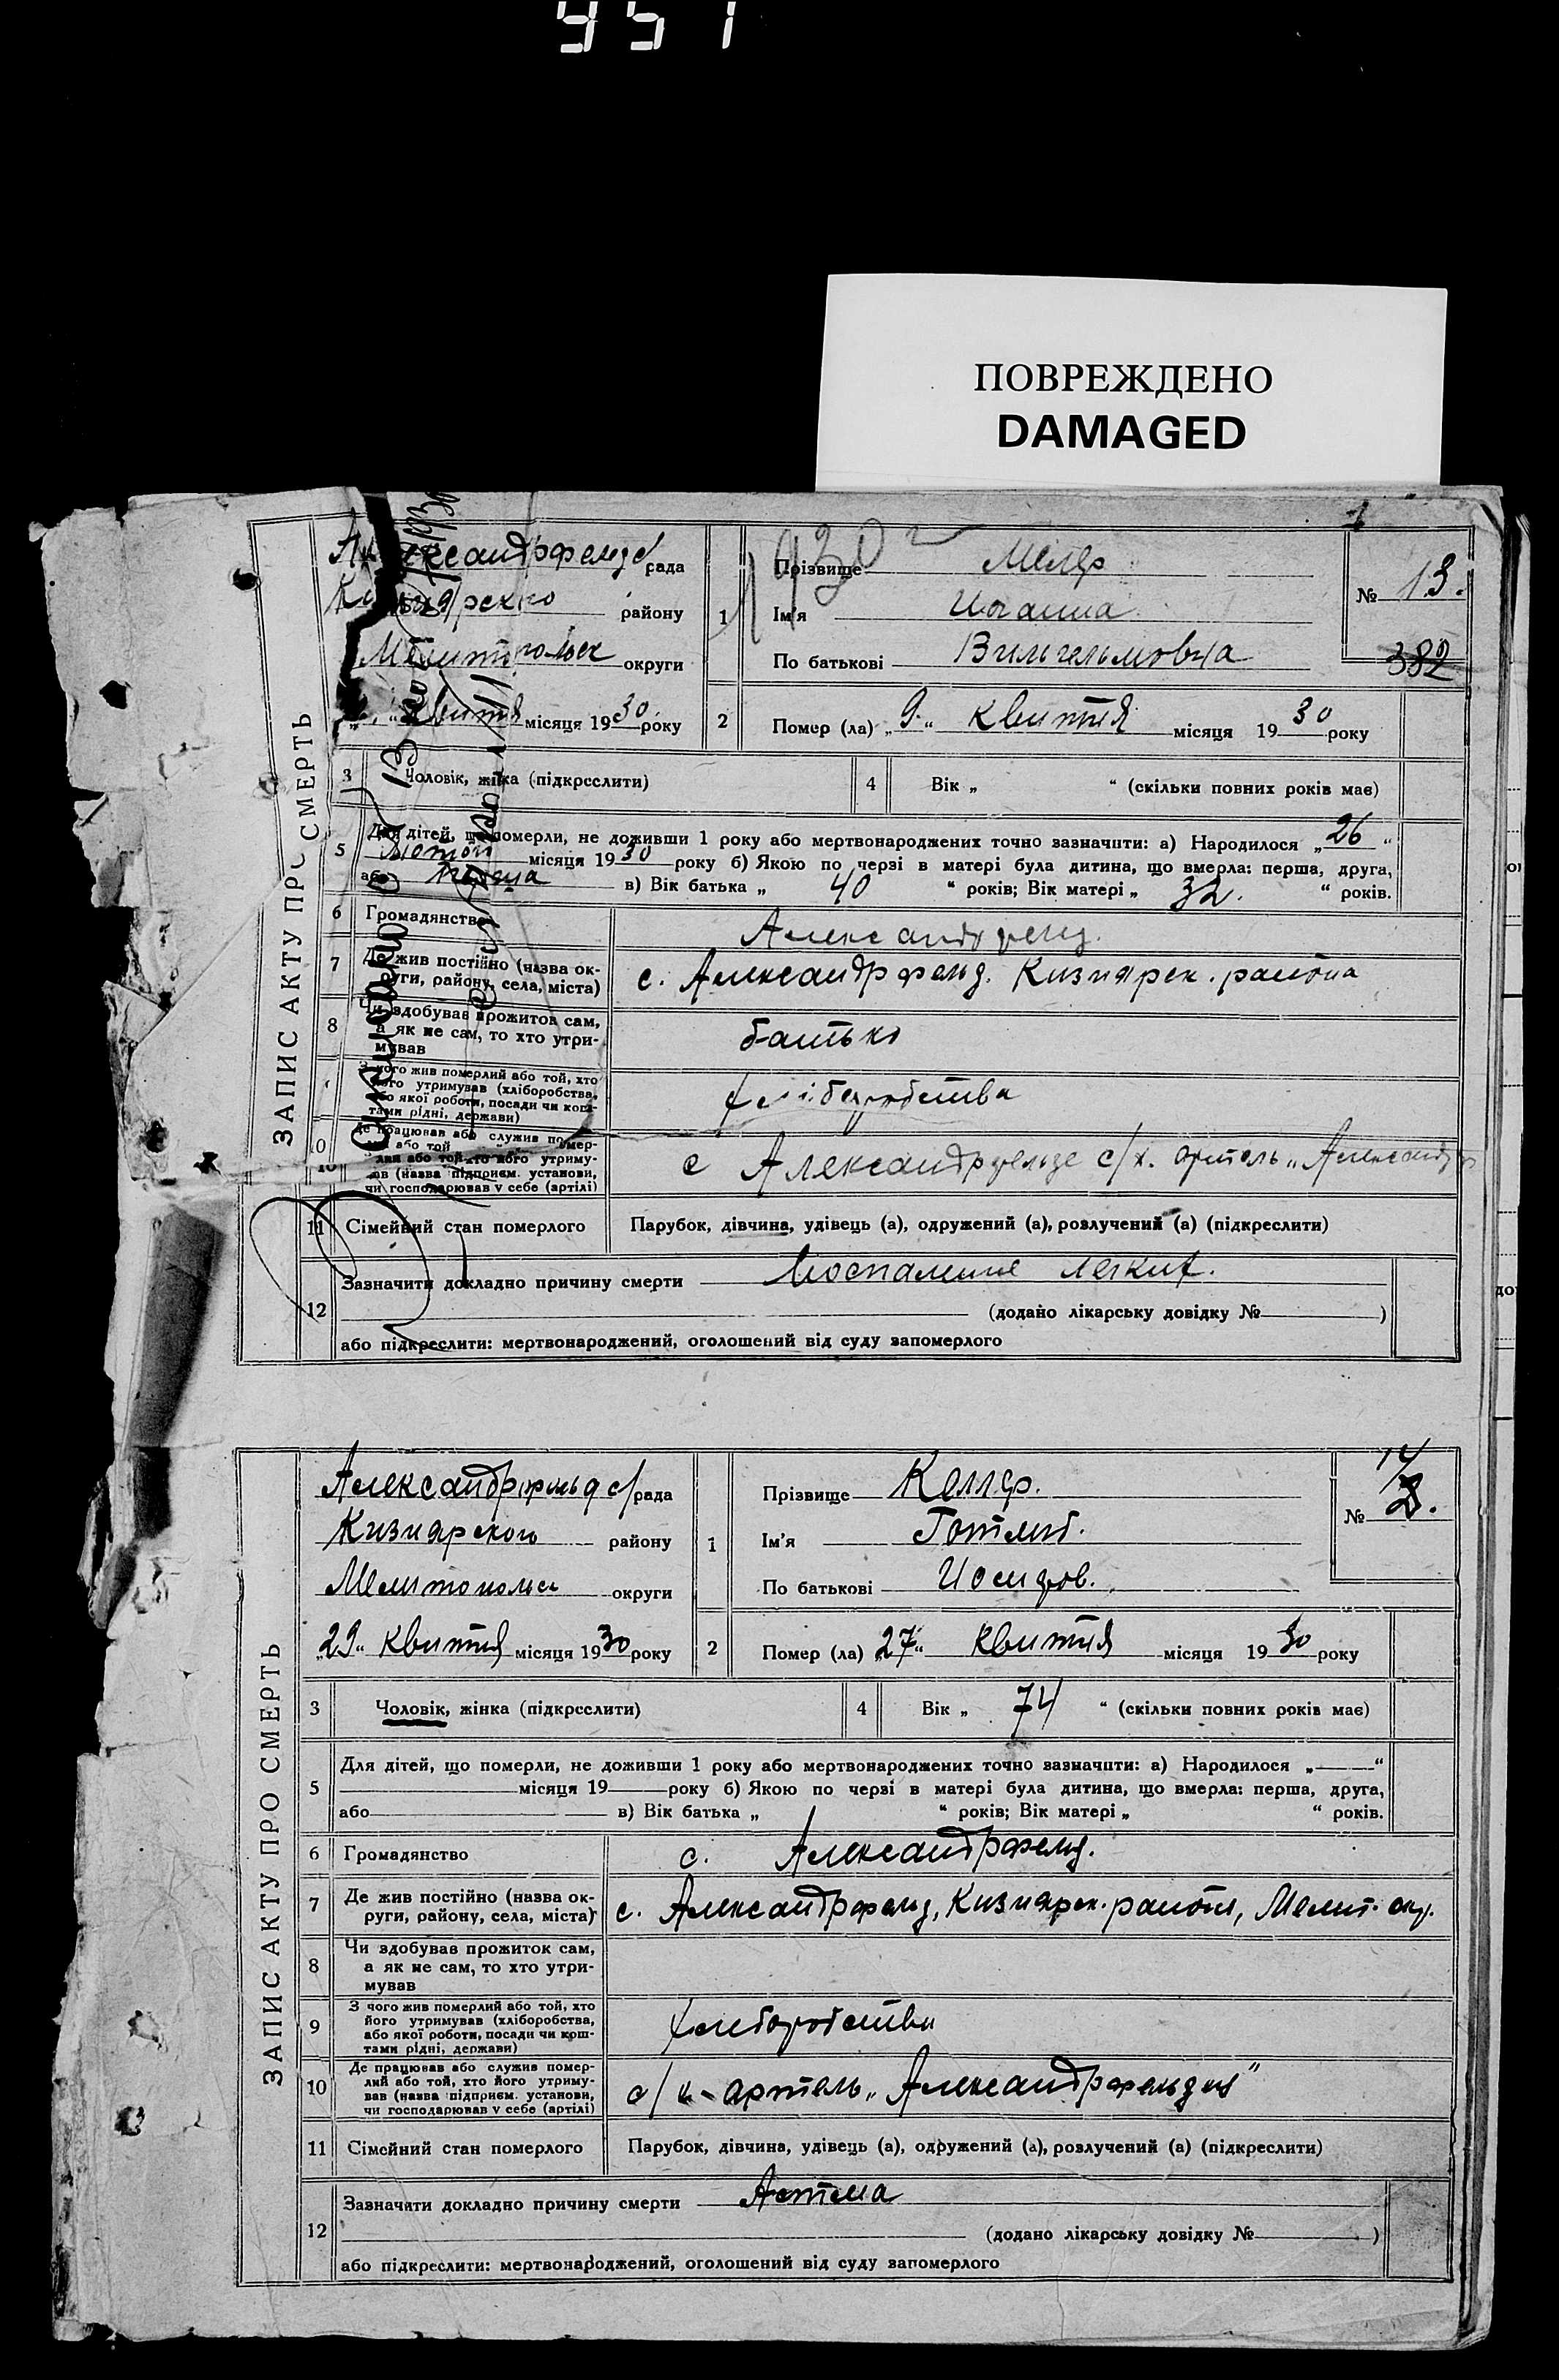 951
ПОВРЕЖДЕНО
DAMAGED
ЗАПИС АКТУ ПРО СМЕРТЬ
Александрфельд с/рада
району
Мелитопольск округи
Квитня місяця 1930 року
1
Прізвище Мелер
Ім'я Иоганна
По батькові Вильгельмовна
№ 13.
382
2
Помер (ла) „9“ Квитня місяця 1930 року
3
Чоловік, жінка (підкреслити)
4
Вік „ “ (скільки повних років має)
5
Для дітей, що померли, не доживши 1 року або мертвонароджених точно зазначити: а) Народилося „26“
Лютого місяця 1930 року б) Якою по черзі в матері була дитина, що вмерла: перша, друга,
або в) Вік батька „ 40 “ років; Вік матері „ 32. “ років.
6
Громадянство
Александрфельд.
7
Де жив постійно (назва округи, району, села, міста)
с. Александрфельд. Кизиярск. района
8
Чи здобував прожиток сам,
а як не сам, то хто утри-
мував
батько
З чого жив померлий або той, хто
його утримував (хліборобства,
або якої роботи, посади чи кош-
тами рідні, держави)
хліборобства
10
Де працював або служив помер-
лий або той, хто його утриму-
вав (назва підприєм. установи,
чи господарював у себе (артілі)
с Александрфельде с/х. артель „Александрф
11
Сімейний стан померлого
Парубок, дівчина, удівець (а), одружений (а), розлучений (а) (підкреслити)
12
Зазначити докладно причину смерти Воспаление легких.
(додано лікарську довідку № )
або підкреслити: мертвонароджений, оголошений від суду запомерлого
ЗАПИС АКТУ ПРО СМЕРТЬ
Александрфельд с/рада
Кизиярского району
Мелитопольск округи
„29“ Квитня місяця 1930 року
1
Прізвище Келлер.
Ім'я Готлиб.
По батькові Иосифов.
14
№
2
Помер (ла) „27“ Квитня місяця 1930 року
3
Чоловік, жінка (підкреслити)
4
Вік „ 74 “ (скільки повних років має)
5
Для дітей, що померли, не доживши 1 року або мертвонароджених точно зазначити: а) Народилося „ “
місяця 19 року б) Якою по черзі в матері була дитина, що вмерла: перша, друга,
або в) Вік батька „ “ років; Вік матері „ “ років.
6
Громадянство
с. Александрфельд.
7
Де жив постійно (назва ок-
руги, району, села, міста)
с. Александрфельд, Кизиярск. района, Мелит. окр.
8
Чи здобував прожиток сам,
а як не сам, то хто утри-
мував
9
З чого жив померлий або той, хто
його утримував (хліборобства,
або якої роботи, посади чи кош-
тами рідні, держави)
хлиборобства
10
Де працював або служив помер-
лий або той, хто його утриму-
вав (назва підприєм. установи,
чи господарював у себе (артілі)
с/х артель „Александрфельд
11
Сімейний стан померлого
Парубок, дівчина, удівець (а), одружений (а), розлучений (а) (підкреслити)
12
Зазначити докладно причину смерти Астма
(додано лікарську довідку № )
або підкреслити: мертвонароджений, оголошений від суду запомерлого